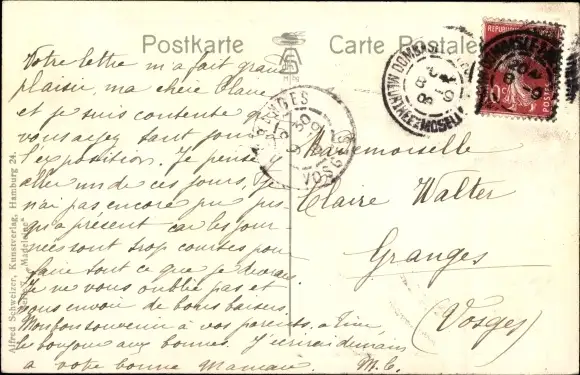 Postkarte
Carte Postale
Votre lettre m'a fait grand
plaisir, ma chère Claire
et je suis contente que
vous ayez tant joui de
l'exposition. Je pense y
aller un de ces jours, je
n'ai pas encore pu jus
qu'à présent car les jour
nées sont trop courtes pour
faire tout ce que je devrais.
Je ne vous oublie pas et
vous envoie de bons baisers.
Mon bon souvenir à vos parents, a
le bonjour aux bonnes. J'écrirai demain
à votre bonne Maman. M. C.
Mademoiselle
Claire Walter
Granges
(Vosges)
GRANGES
VOSGES
DOMBAS
MEURTHE ET MOSELLE
POSTES
10
Alfred Schweizer, Kunstverlag, Hamburg 24.
"Madeleine"